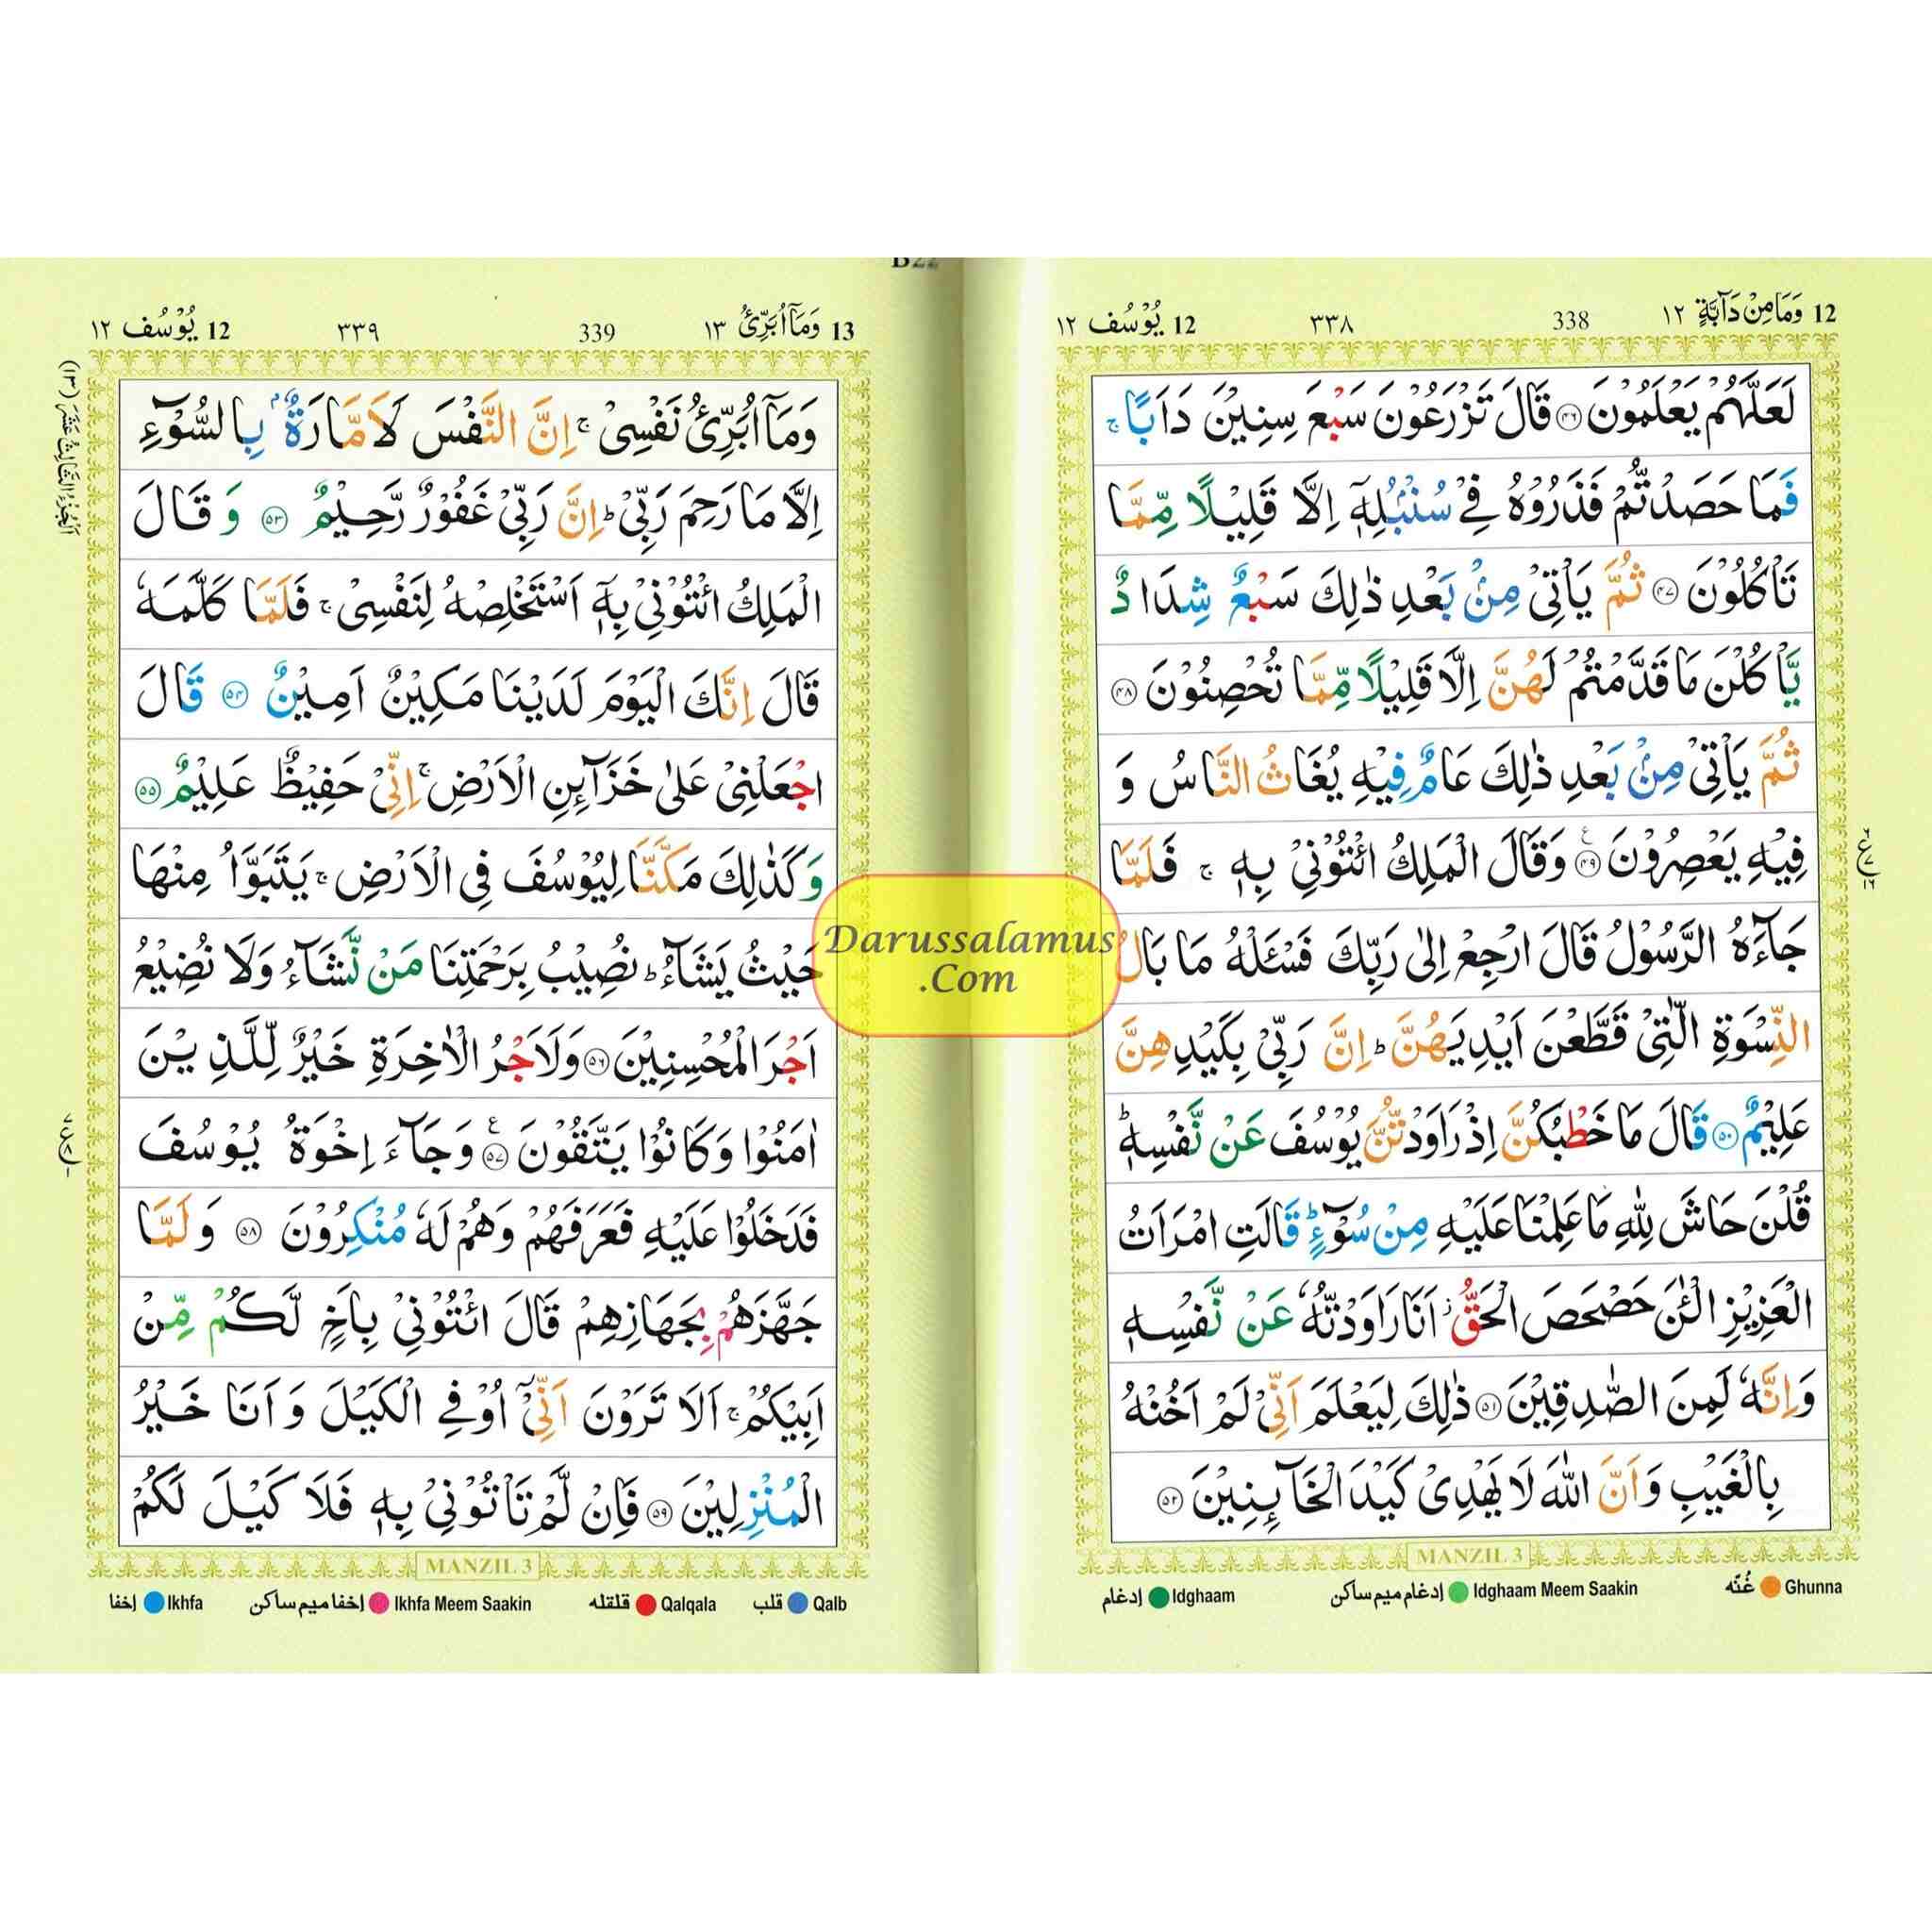 12 وَمَا مِنْ دَآبَّةٍ ١٢
338
٣٣٨
12 يُوْسُف ١٢
لَعَلَّهُمْ يَعْلَمُوْنَ ۝٤٦ قَالَ تَزْرَعُوْنَ سَبْعَ سِنِيْنَ دَاَبًا ۚ
فَمَا حَصَدْتُّمْ فَذَرُوْهُ فِيْ سُنْۢبُلِهٖٓ اِلَّا قَلِيْلًا مِّمَّا
تَاْكُلُوْنَ ۝٤٧ ثُمَّ يَاْتِيْ مِنْۢ بَعْدِ ذٰلِكَ سَبْعٌ شِدَادٌ
يَّاْكُلْنَ مَا قَدَّمْتُمْ لَهُنَّ اِلَّا قَلِيْلًا مِّمَّا تُحْصِنُوْنَ ۝٤٨
ثُمَّ يَاْتِيْ مِنْۢ بَعْدِ ذٰلِكَ عَامٌ فِيْهِ يُغَاثُ النَّاسُ وَ
فِيْهِ يَعْصِرُوْنَ ۝٤٩ وَقَالَ الْمَلِكُ ائْتُوْنِيْ بِهٖ ۚ فَلَمَّا
جَآءَهُ الرَّسُوْلُ قَالَ ارْجِعْ اِلٰى رَبِّكَ فَسْئَلْهُ مَا بَالُ
النِّسْوَةِ الّٰتِيْ قَطَّعْنَ اَيْدِيَهُنَّ ؕ اِنَّ رَبِّيْ بِكَيْدِهِنَّ
عَلِيْمٌ ۝٥٠ قَالَ مَا خَطْبُكُنَّ اِذْ رَاوَدْتُّنَّ يُوْسُفَ عَنْ نَّفْسِهٖ ؕ
قُلْنَ حَاشَ لِلّٰهِ مَا عَلِمْنَا عَلَيْهِ مِنْ سُوْٓءٍ ؕ قَالَتِ امْرَاَتُ
الْعَزِيْزِ الْئٰنَ حَصْحَصَ الْحَقُّ ؗ اَنَا رَاوَدْتُّهٗ عَنْ نَّفْسِهٖ
وَاِنَّهٗ لَمِنَ الصّٰدِقِيْنَ ۝٥١ ذٰلِكَ لِيَعْلَمَ اَنِّيْ لَمْ اَخُنْهُ
بِالْغَيْبِ وَاَنَّ اللّٰهَ لَا يَهْدِيْ كَيْدَ الْخَآئِنِيْنَ ۝٥٢
MANZIL 3
Ghunna غُنّه
Idghaam Meem Saakin إدغام ميم ساكن
Idghaam إدغام
13 وَمَآ اُبَرِّئُ ١٣
339
٣٣٩
12 يُوْسُف ١٢
وَمَآ اُبَرِّئُ نَفْسِيْ ۚ اِنَّ النَّفْسَ لَاَمَّارَةٌۢ بِالسُّوْٓءِ
اِلَّا مَا رَحِمَ رَبِّيْ ؕ اِنَّ رَبِّيْ غَفُوْرٌ رَّحِيْمٌ ۝٥٣ وَقَالَ
الْمَلِكُ ائْتُوْنِيْ بِهٖٓ اَسْتَخْلِصْهُ لِنَفْسِيْ ۚ فَلَمَّا كَلَّمَهٗ
قَالَ اِنَّكَ الْيَوْمَ لَدَيْنَا مَكِيْنٌ اَمِيْنٌ ۝٥٤ قَالَ
اجْعَلْنِيْ عَلٰى خَزَآئِنِ الْاَرْضِ ۚ اِنِّيْ حَفِيْظٌ عَلِيْمٌ ۝٥٥
وَكَذٰلِكَ مَكَّنَّا لِيُوْسُفَ فِي الْاَرْضِ ۚ يَتَبَوَّاُ مِنْهَا
حَيْثُ يَشَآءُ ؕ نُصِيْبُ بِرَحْمَتِنَا مَنْ نَّشَآءُ وَلَا نُضِيْعُ
اَجْرَ الْمُحْسِنِيْنَ ۝٥٦ وَلَاَجْرُ الْاٰخِرَةِ خَيْرٌ لِّلَّذِيْنَ
اٰمَنُوْا وَكَانُوْا يَتَّقُوْنَ ۝٥٧ وَجَآءَ اِخْوَةُ يُوْسُفَ
فَدَخَلُوْا عَلَيْهِ فَعَرَفَهُمْ وَهُمْ لَهٗ مُنْكِرُوْنَ ۝٥٨ وَلَمَّا
جَهَّزَهُمْ بِجَهَازِهِمْ قَالَ ائْتُوْنِيْ بِاَخٍ لَّكُمْ مِّنْ
اَبِيْكُمْ ۚ اَلَا تَرَوْنَ اَنِّيْٓ اُوْفِي الْكَيْلَ وَاَنَا خَيْرُ
الْمُنْزِلِيْنَ ۝٥٩ فَاِنْ لَّمْ تَاْتُوْنِيْ بِهٖ فَلَا كَيْلَ لَكُمْ
MANZIL 3
Qalb قلب
Qalqala قلقله
Ikhfa Meem Saakin إخفا ميم ساكن
Ikhfa إخفا
اَلْجُزْءُ الثَّالِثُ عَشَرَ (١٣)
Darussalamus
.Com